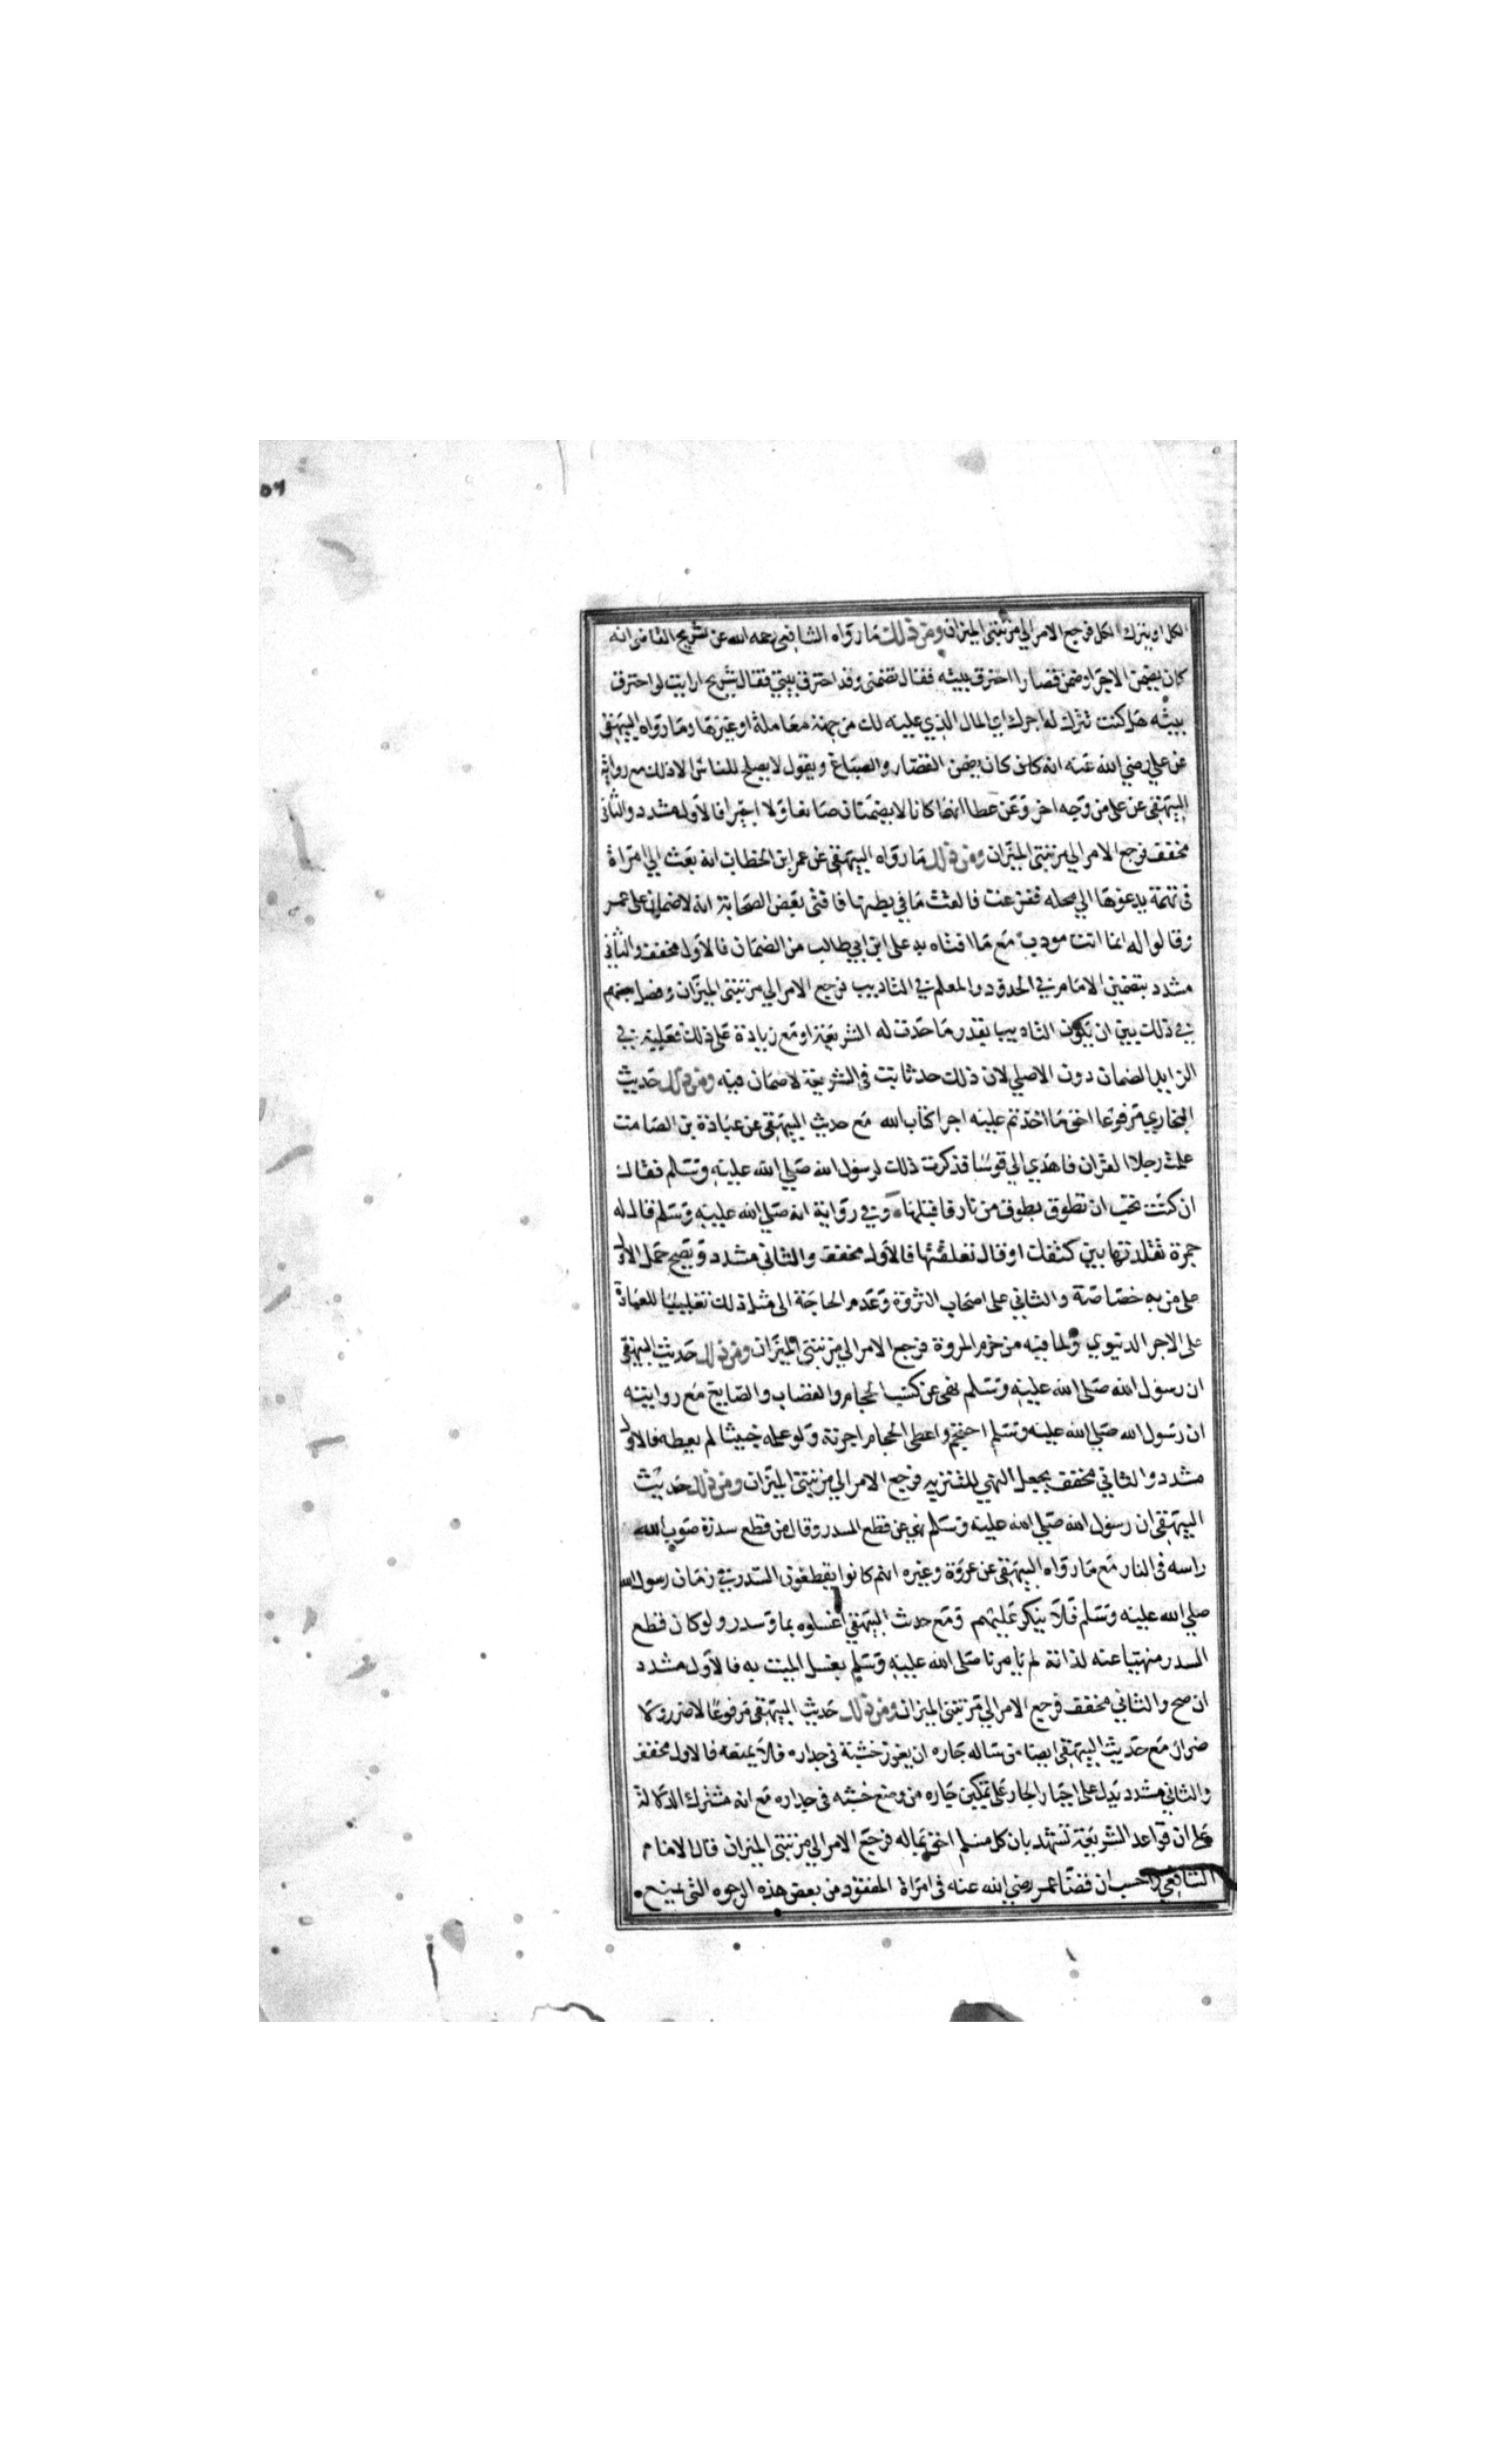 ٥٦
الكل او يترك الكل فرجع الامر الي مرتبتي الميزان ومن ذلك ما رواه الشافعي رحمه الله عن شريح القاضي انه
كان يضمن الاجرا وضمن قصارا احترق بيته فقال تضمني وقد احترق بيتي فقال شريح ارايت لو احترق
بيته هل كنت تترك له اجرك اي المال الذي عليه لك من جهة معاملة او غيرها وما رواه البيهقي
عن علي رضي الله عنه انه كان كان يضمن القصار والصباغ ويقول لا يصلح للناس الا ذلك مع رواية
البيهقي عن علي من وجه اخر وعن عطا انهما كانا لا يضمنان صانعا ولا اجيرا فالاول مشدد والثاني
مخفف فرجع الامر الي مرتبتي الميزان ومن ذلك ما رواه البيهقي عن عمر ابن الخطاب انه بعث الي امراة
في تهمة يدعوها الي محله ففزعت فالقت ما في بطنها فافتي بعض الصحابة انه لا ضمان علي عمر
وقالوا له انما انت مودب مع ما افتاه به علي ابن ابي طالب من الضمان فالاول مخفف والثاني
مشدد بتضمين الامام في الحدود والمعلم في التاديب فرجع الامر الي مرتبتي الميزان وفصل بعضهم
في ذلك بين ان يكون التاديب بقدر ما حدت له الشريعة او مع زيادة علي ذلك فعليه في
الزايد الضمان دون الاصلي لان ذلك حد ثابت في الشريعة لا ضمان فيه ومن ذلك حديث
البخاري مرفوعا احق ما اخذتم عليه اجرا كتاب الله مع حديث البيهقي عن عبادة بن الصامت
علمت رجلا القران فاهدي الي قوسا فذكرت ذلك لرسول الله صلي الله عليه وسلم فقال
ان كنت تحب ان تطوق بطوق من نار فاقبلها وفي رواية انه صلي الله عليه وسلم قال له
جمرة تقلدتها بين كتفك او قال تعلقتها فالاول مخفف والثاني مشدد ويصح حمل الاول
علي من به خصاصة والثاني علي اصحاب الثروة وعدم الحاجة الي مثل ذلك تغليبا للعبادة
علي الاجر الدنيوي ولما فيه من خرم المروة فرجع الامر الي مرتبتي الميزان ومن ذلك حديث البيهقي
ان رسول الله صلي الله عليه وسلم نهي عن كسب الحجام والقصاب والصايغ مع روايته
ان رسول الله صلي الله عليه وسلم احتجم واعطي الحجام اجرته ولو علمه خبيثا لم يعطه فالاول
مشدد والثاني مخفف بجعل النهي للتنزيه فرجع الامر الي مرتبتي الميزان ومن ذلك حديث
البيهقي ان رسول الله صلي الله عليه وسلم نهي عن قطع السدر وقال من قطع سدرة صوب الله
راسه في النار مع ما رواه البيهقي عن عروة وغيره انهم كانوا يقطعون السدر في زمان رسول الله
صلي الله عليه وسلم فلا ينكر عليهم ومع حدث البيهقي اغسلوه بما وسدر ولو كان قطع
السدر منهيا عنه لذاته لم يامرنا صلي الله عليه وسلم بغسل الميت به فالاول مشدد
ان صح والثاني مخفف فرجع الامر الي مرتبتي الميزان ومن ذلك حديث البيهقي مرفوعا لا ضرر ولا
ضرار مع حديث البيهقي ايضا من ساله جاره ان يغرز خشبة في جداره فلا يمنعه فالاول مخفف
والثاني مشدد يدل علي اجبار الجار علي تمكين جاره من وضع خشبه في جداره مع انه مشترك الدلالة
علي ان قواعد الشريعة تشهد بان كل مسلم احق بماله فرجع الامر الي مرتبتي الميزان قال الامام
الشافعي واحسب ان قضا عمر رضي الله عنه في امراة المفقود من بعض هذه الوجوه التي يمنع